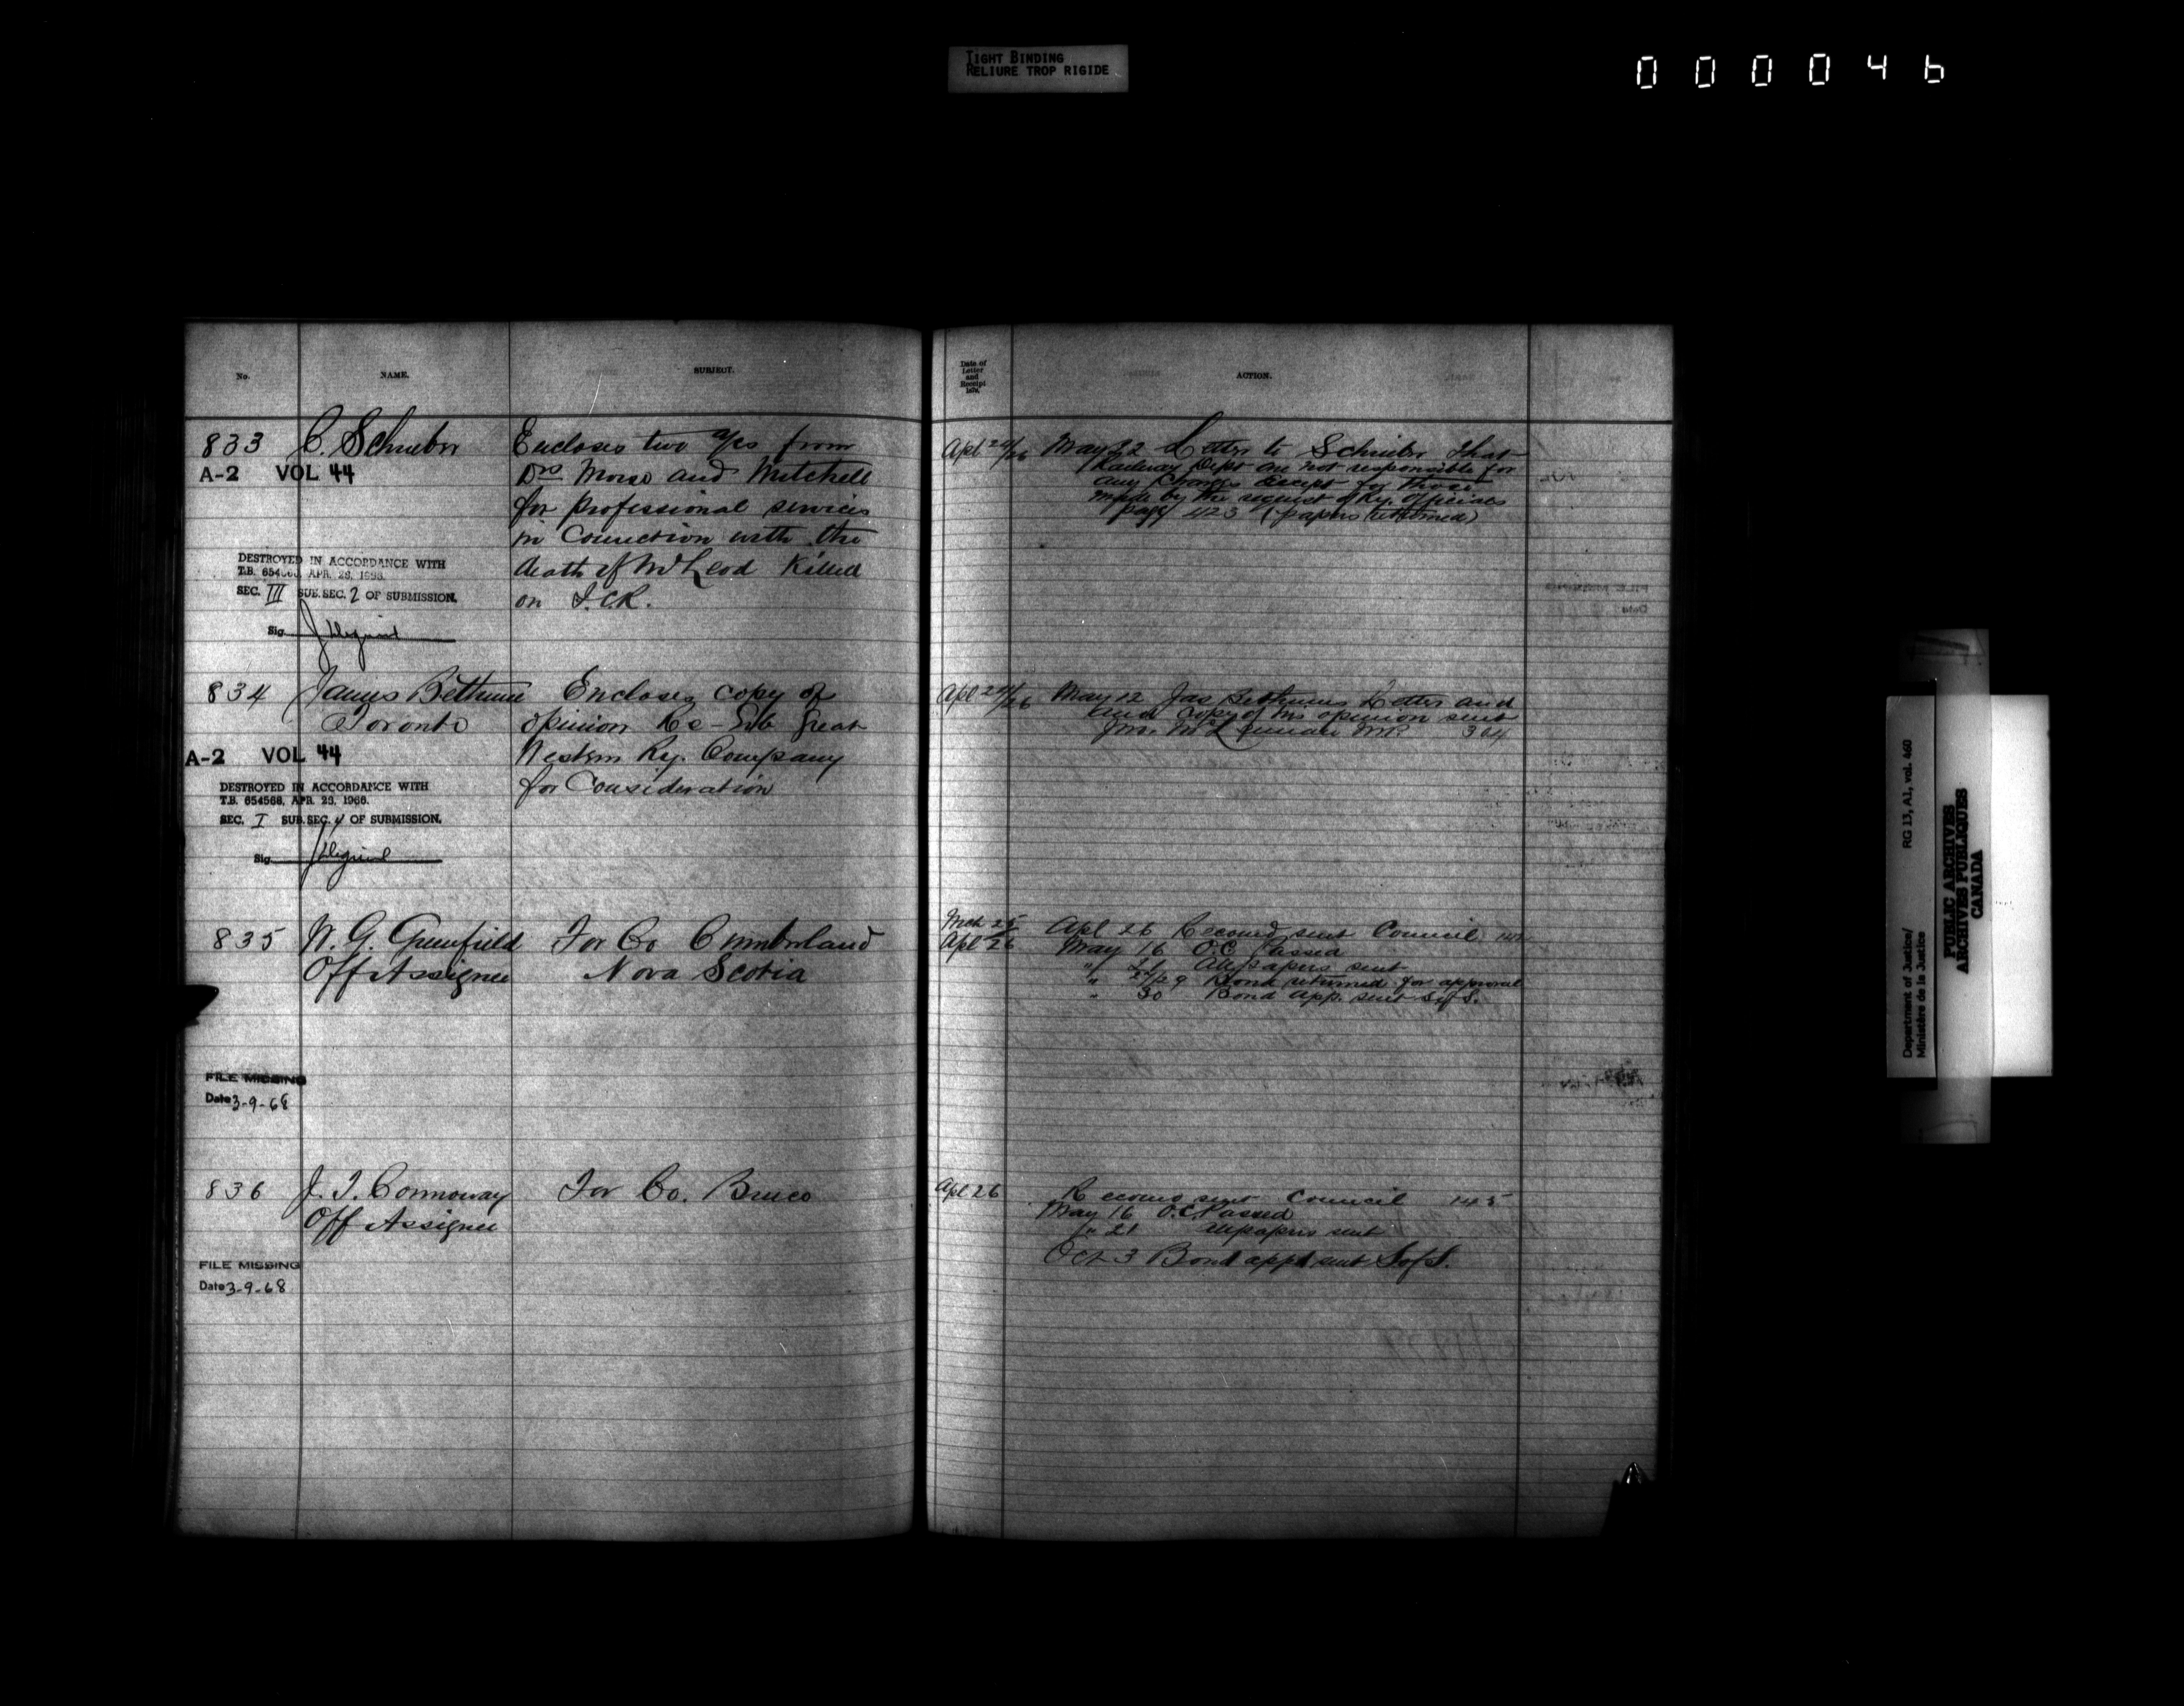 TIGHT BINDING
RELIURE TROP RIGIDE
000046
No. NAME. SUBJECT.
833 C. Schrieber Encloses two a/cs from
A-2 VOL 44 Drs Morse and Mitchell
for professional services
in Connection with the
DESTROYED IN ACCORDANCE WITH death of McLeod Killed
T.B. 654568, APR. 29, 1966.
SEC. III SUB. SEC. 2 OF SUBMISSION. on I.C.R.
Sig
834 James Bethune Encloses copy of
Toronto opinion Re - Great
A-2 VOL 44 Western Ry. Company
DESTROYED IN ACCORDANCE WITH for Consideration
T.B. 654568, APR. 29, 1966.
SEC. I SUB. SEC. 4 OF SUBMISSION.
Sig
835 W. G. Greenfield For Co Cumberland
Off Assignee Nova Scotia
FILE MISSING
Date 3-9-68
836 J. T. Connoway For Co. Bruce
Off Assignee
FILE MISSING
Date 3-9-68
Date of
Letter
and
Receipt
187 ACTION.
Apl 24/26 May 22 Letter to Schrieber that
Railway Dept are not responsible for
any Charges except for those
made by the request of Ry. Officials
page 423 (papers returned)
Apl 24/26 May 12 Jas Bethunes Letter and
and copy of his opinion sent
364
Mch 25
Apl 26 Apl 26 Recomd sent Council
May 16 O.C. Passed
" 21 All papers sent
" 27/29 Bond returned for approval
" 30 Bond App. sent S of S.
Apl 26 Recomd sent Council 145
May 16 O.C. Passed
" 21 All papers sent
Oct 3 Bond appd sent S of S.
Department of Justice/ RG 13, A1, vol. 460
Ministère de la Justice
PUBLIC ARCHIVES
ARCHIVES PUBLIQUES
CANADA